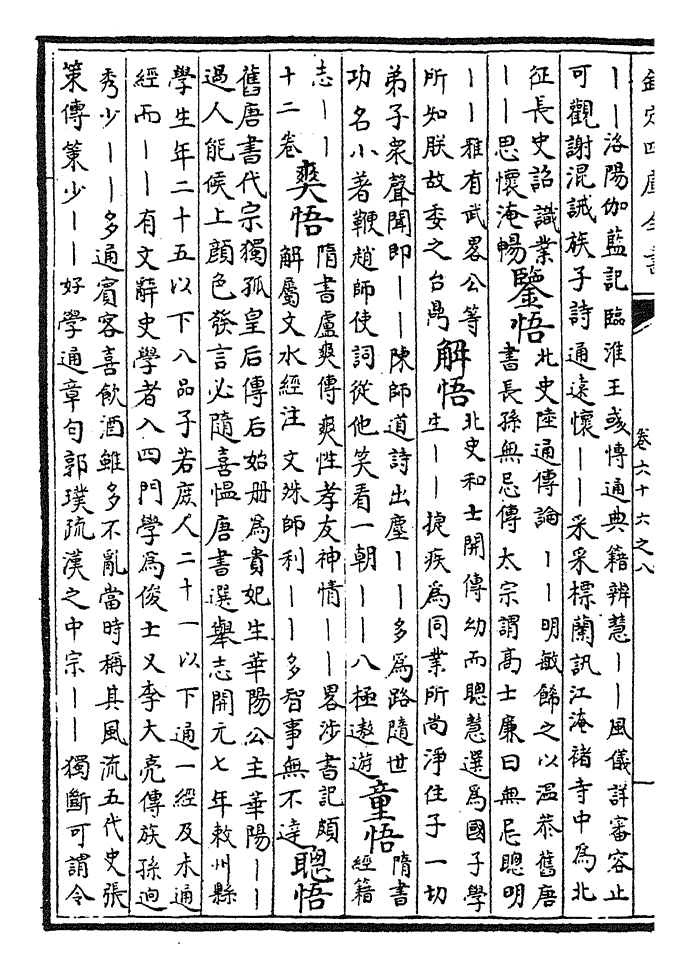 欽定四庫全書
卷六十六之八
——洛陽伽藍記臨淮王彧博通典籍辨慧——風儀詳審容止
可觀謝混誡族子詩通遠懷——采采標蘭訊江淹褚寺中為北
征長史詔識業
——思懷淹暢
鑒悟
北史陸通傳論——明敏餙之以温恭舊唐
書長孫無忌傳太宗謂高士廉曰無忌聰明
——雅有武畧公等
所知朕故委之台鼎
解悟
北史和士開傳幼而聰慧選為國子學
生——捷疾為同業所尚淨住子一切
弟子衆聲聞即——陳師道詩出塵——多為路隨世
功名小著鞭趙師使詞從他笑看一朝——八極遨遊
童悟
隋書
經籍
志——
十二卷
爽悟
隋書盧爽傳爽性孝友神情——畧涉書記頗
解屬文水經注文殊師利——多智事無不達
聰悟
舊唐書代宗獨孤皇后傳后始册為貴妃生華陽公主華陽——
過人能候上顔色發言必隨喜愠唐書選舉志開元七年敕州縣
學生年二十五以下八品子若庶人二十一以下通一經及未通
經而——有文辭史學者入四門學為俊士又李大亮傳族孫迥
秀少——多通賓客喜飲酒雖多不亂當時稱其風流五代史張
策傳策少——好學通章句郭璞疏漢之中宗——獨斷可謂令